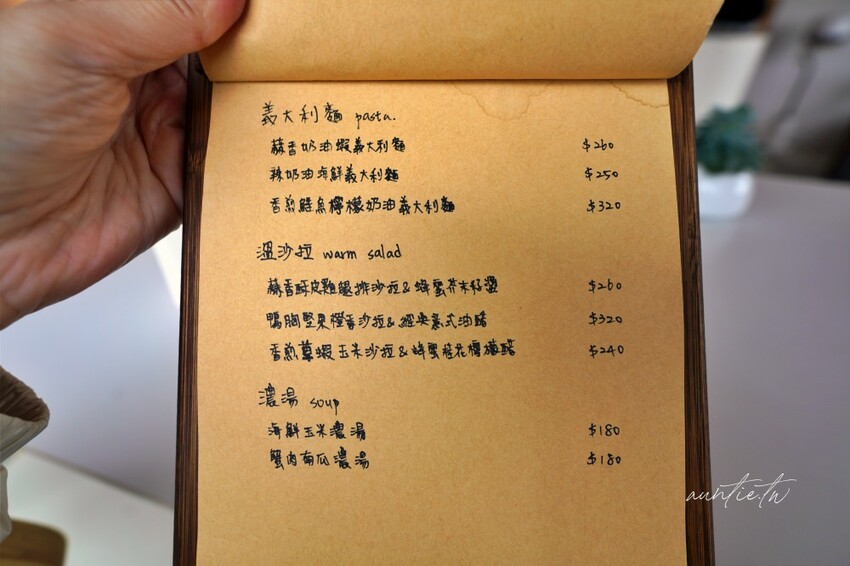 義大利麵 pasta.
蒜香奶油蝦義大利麵 $260
辣奶油海鮮義大利麵 $250
香煎鮭魚檸檬奶油義大利麵 $320
溫沙拉 warm salad
蒜香酥皮雞腿排沙拉& 蜂蜜芥末籽醬 $260
鴨胸堅果橙香沙拉& 經典義式油醋 $320
香煎草蝦玉米沙拉& 蜂蜜桂花檸檬醋 $240
濃湯 soup
海鮮玉米濃湯 $180
蟹肉南瓜濃湯 $180
auntie.tw